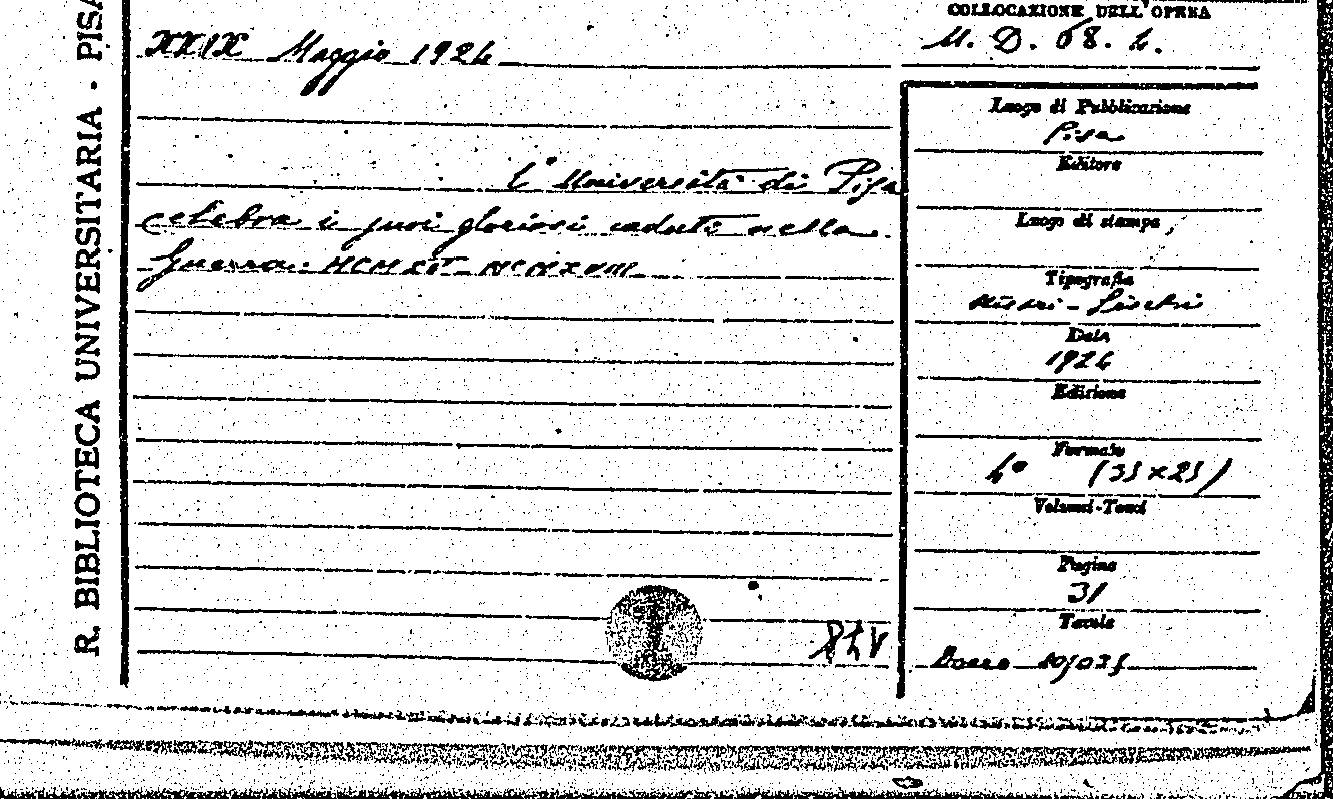 R. BIBLIOTECA UNIVERSITARIA - PISA
XXIX Maggio 1924
L'Università di Pisa
celebra i suoi gloriosi caduti nella
Guerra. MCMXV - MCMXVIII
COLLOCAZIONE DELL'OPERA
M. D. 68. 4.
Luogo di Pubblicazione
Pisa
Editore
Luogo di stampa
Tipografia
Nistri-Lischi
Data
1924
Edizione
Formato
4° (35×25)
Volumi-Tomi
Pagine
31
Tavole
Dono